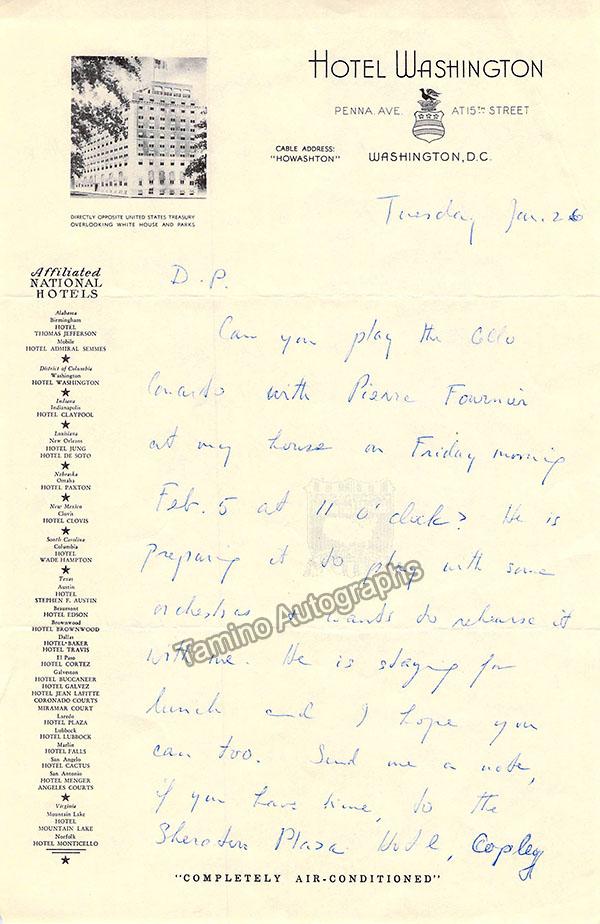 HOTEL WASHINGTON
PENNA. AVE. AT 15TH STREET
CABLE ADDRESS:
"HOWASHTON"
WASHINGTON, D.C.
DIRECTLY OPPOSITE UNITED STATES TREASURY
OVERLOOKING WHITE HOUSE AND PARKS
Tuesday Jan. 26
Affiliated
NATIONAL
HOTELS
Alabama
Birmingham
HOTEL
THOMAS JEFFERSON
Mobile
HOTEL ADMIRAL SEMMES
District of Columbia
Washington
HOTEL WASHINGTON
Indiana
Indianapolis
HOTEL CLAYPOOL
Louisiana
New Orleans
HOTEL JUNG
HOTEL DE SOTO
Nebraska
Omaha
HOTEL PAXTON
New Mexico
Clovis
HOTEL CLOVIS
South Carolina
Columbia
HOTEL
WADE HAMPTON
Texas
Austin
HOTEL
STEPHEN F. AUSTIN
Beaumont
HOTEL EDSON
Brownwood
HOTEL BROWNWOOD
Dallas
HOTEL BAKER
HOTEL TRAVIS
El Paso
HOTEL CORTEZ
Galveston
HOTEL BUCCANEER
HOTEL GALVEZ
HOTEL JEAN LAFITTE
CORONADO COURTS
MIRAMAR COURT
Laredo
HOTEL PLAZA
Lubbock
HOTEL LUBBOCK
Marlin
HOTEL FALLS
San Angelo
HOTEL CACTUS
San Antonio
HOTEL MENGER
ANGELES COURTS
Virginia
Mountain Lake
HOTEL
MOUNTAIN LAKE
Norfolk
HOTEL MONTICELLO
D. P.
Can you play the Cello
Concerto with Pierre Fournier
at my house on Friday morning
Feb. 5 at 11 o'clock? He is
preparing it to play with some
orchestras & wants to rehearse it
with me. He is staying for
lunch and I hope you
can too. Send me a note,
if you have time, to the
Sheraton Plaza Hotel, Copley
Tamino Autographs
"COMPLETELY AIR-CONDITIONED"